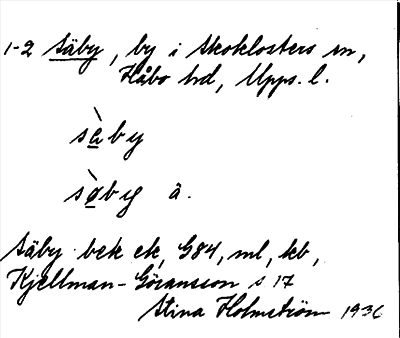 1-2 Säby, by i Skoklosters sn,
Håbo hd, Upps. l.
sὲby
sὰby å.
Säby bek ek, G84, ml, kb,
Kjellman-Göransson s 17
Stina Holmström 1936